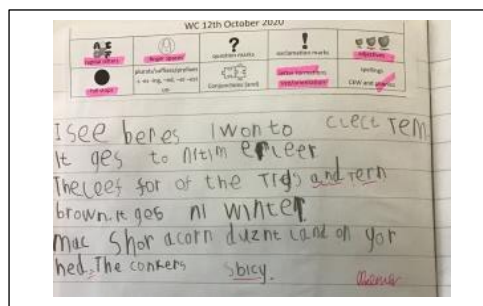 WC 12th October 2020
capital letters
finger spaces
question marks
exclamation marks
adjectives
full stops
plurals/suffixes/prefixes
Conjunctions (and)
letter formation/
spellings
CEW and phonics
I see beres I won to clect Tem
It ges to nitim erleer
The leef for of the Tres and tern
brown. It ges ni winter
mac Shor acorn duznt land on yor
hed. The conkers sbicy.